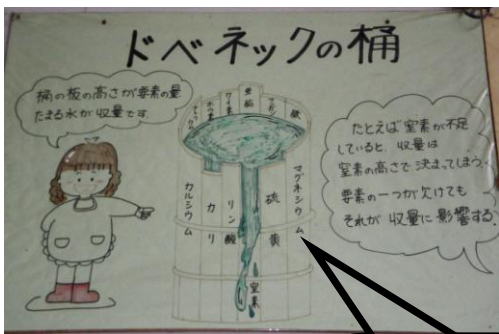 ドベネックの桶
桶の板の高さが要素の量
たまる水が収量です
たとえば窒素が不足
していると、収量は
窒素の高さで決まってしまう。
要素の一つが欠けても
それが収量に影響する。
亜鉛
カルシウム
カリ
リン酸
窒素
硫黄
マグネシウム